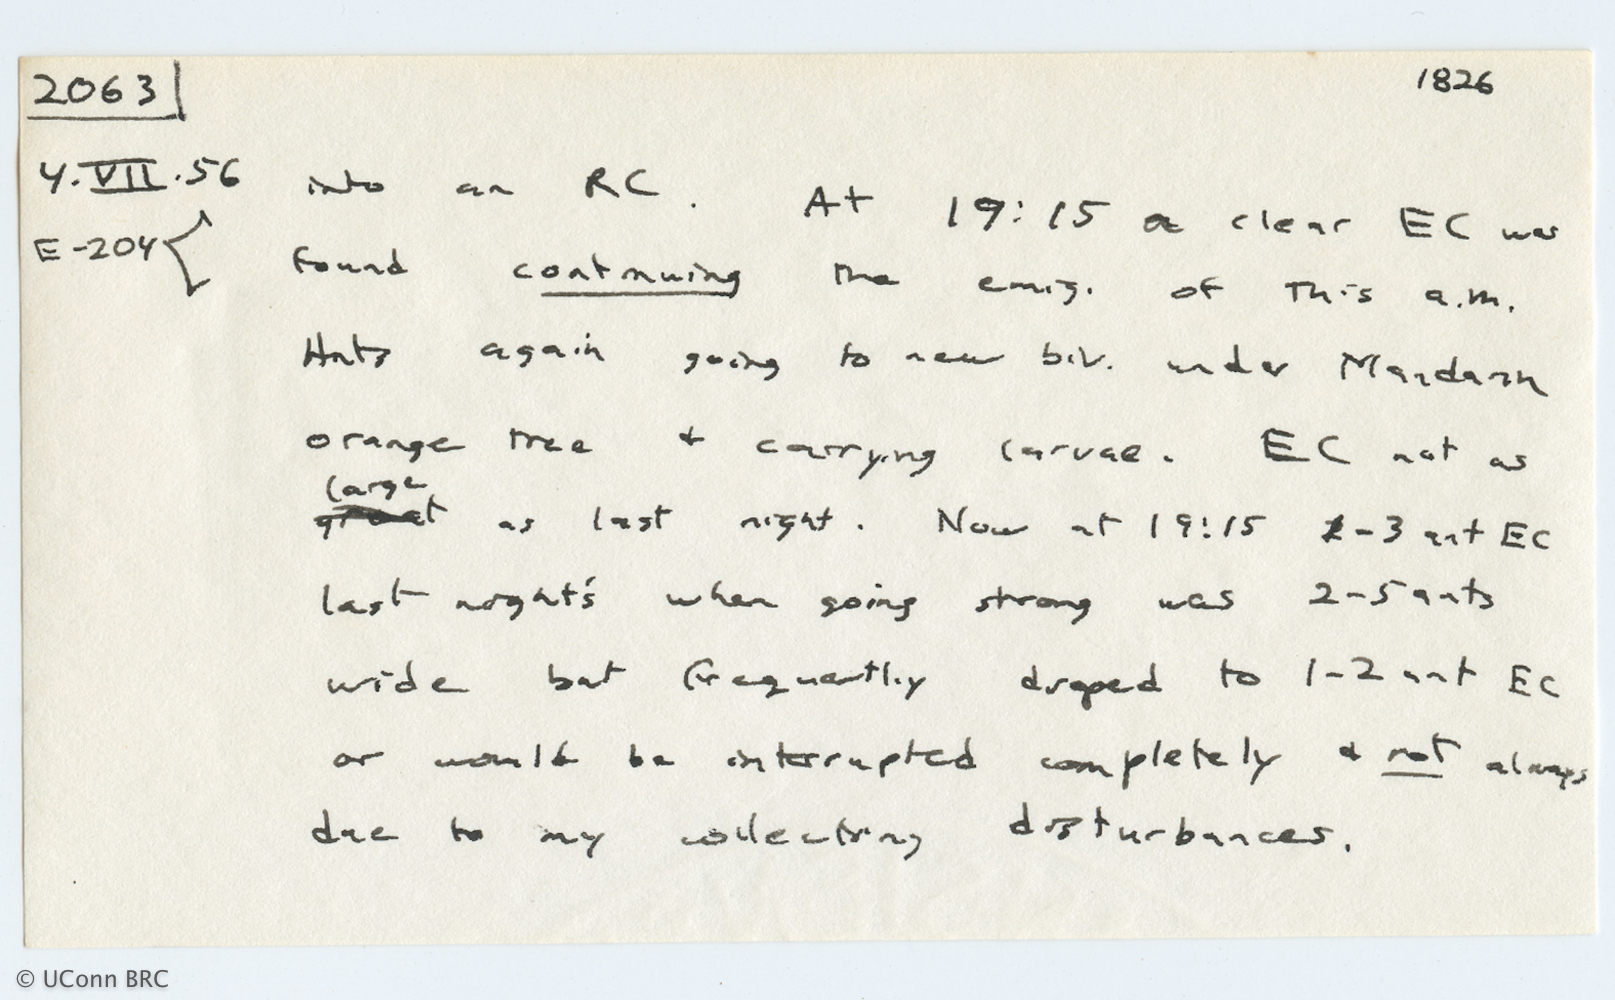 2063
1826
4.VII.56 into an RC. At 19:15 a clear EC was
E-204 found continuing the emig. of this a.m.
Ants again going to new biv. under Mandarin
orange tree & carrying larvae. EC not as
large
great as last night. Now at 19:15 2-3 ant EC
last night's when going strong was 2-5 ants
wide but frequently droped to 1-2 ant EC
or would be interrupted completely & not always
due to my collecting disturbances.
© UConn BRC